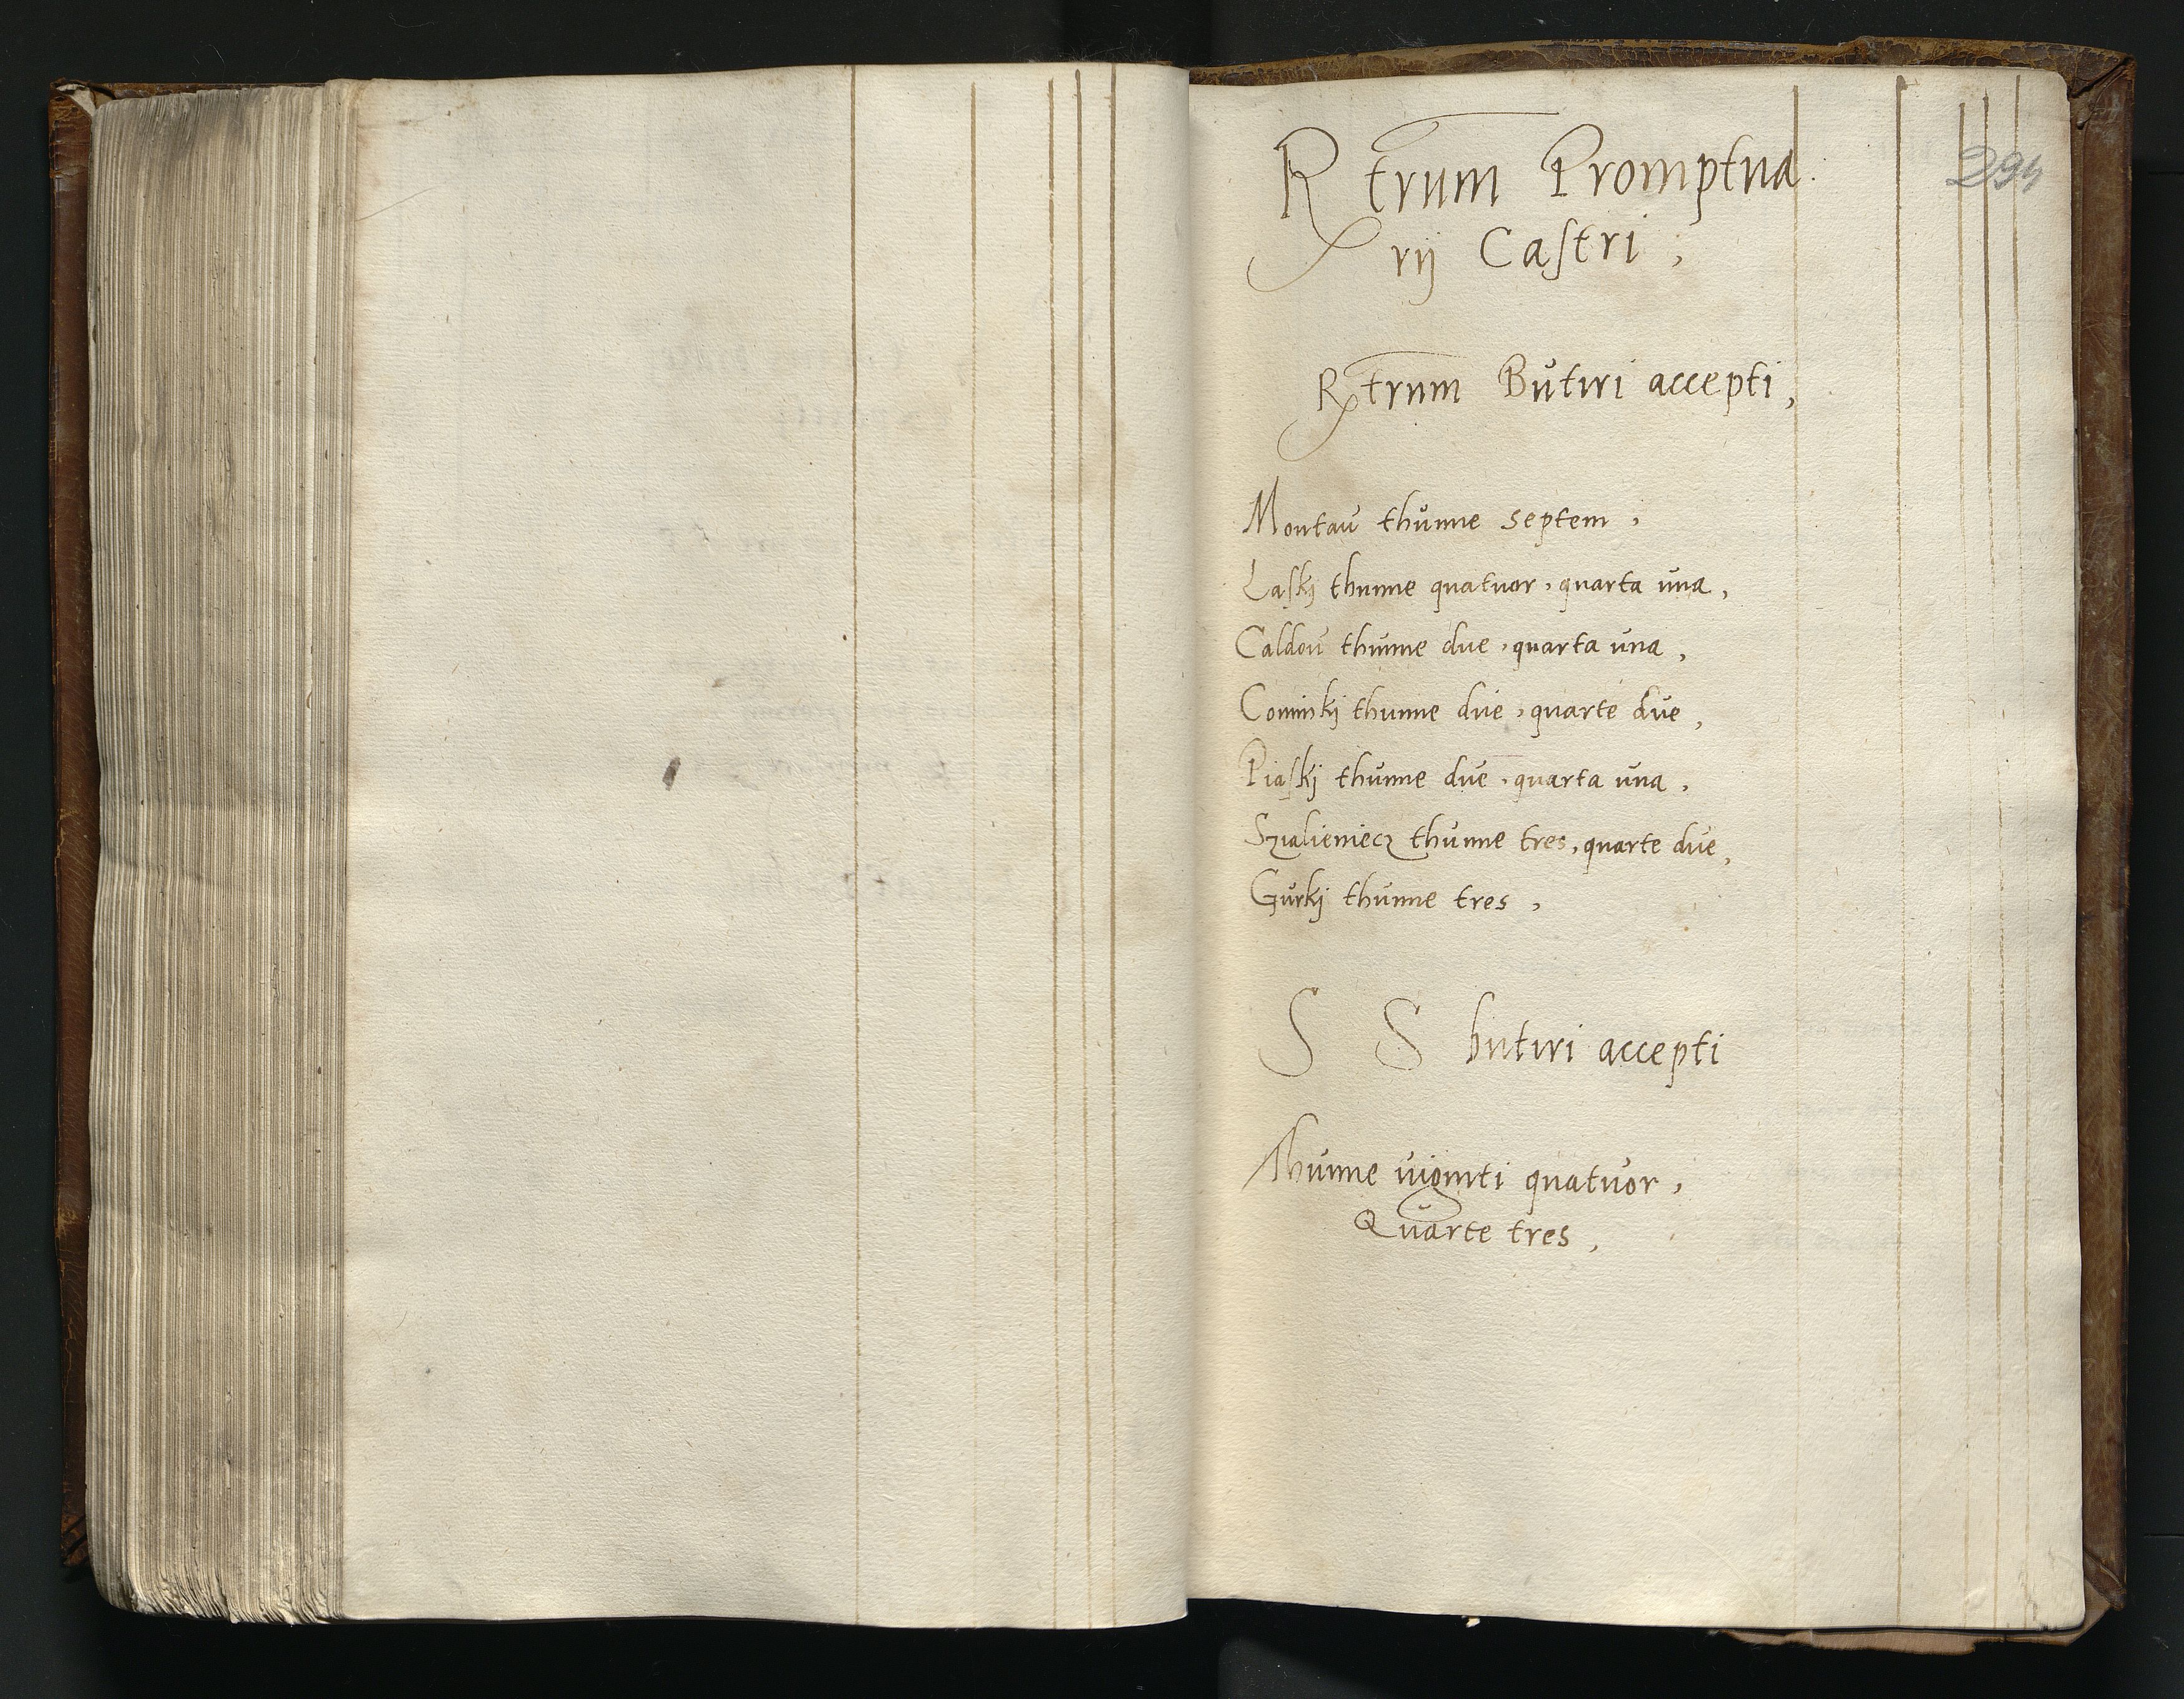 294
Rtrum Promptua
rij Castri ;
Rtrum Butiri accepti,
Montau thunne septem,
Laskj thunne quatuor, quarta una,
Caldou thunne due, quarta una,
Cominkj thunne due, quarte due,
Piaskj thunne due, quarta una,
Szialieniecz thunne tres, quarte due,
Gurkj thunne tres,
S S butiri accepti
Thunne uiginti quatuor,
Quarte tres,